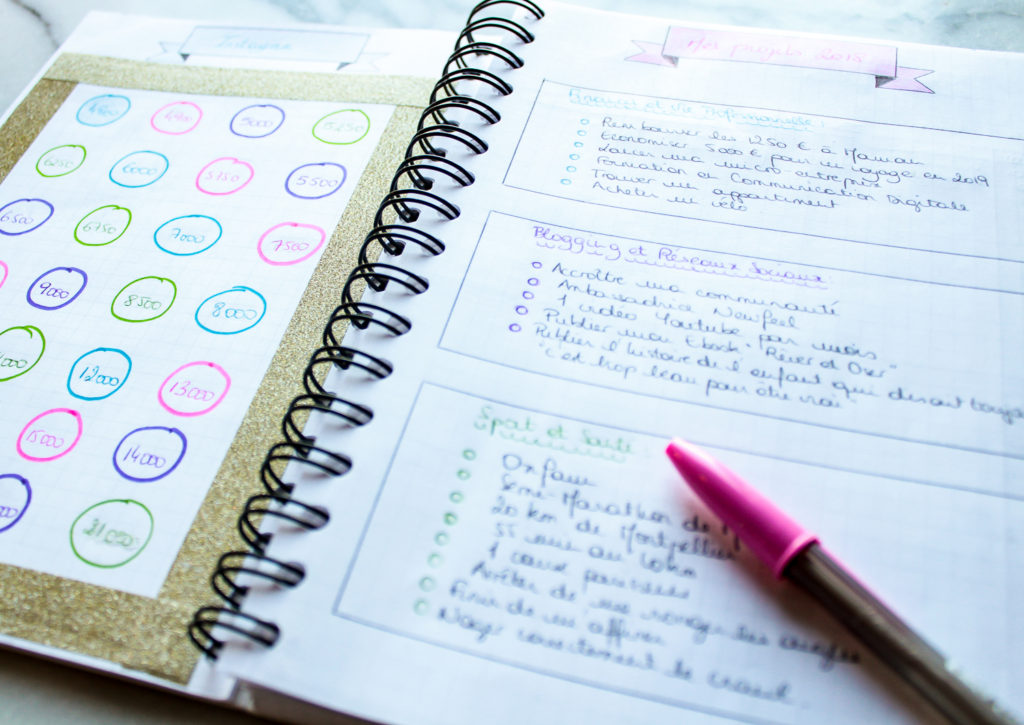 4900
5000
5250
6250
6000
5750
5500
6500
6750
7000
7500
9000
8500
8000
12000
13000
15000
14000
21000
Mes projets 2018
Rembourser les 1250 € à Maman
Economiser 5000 € pour un voyage en 2019
Lancer ma micro entreprise
Formation en Communication Digitale
Trouver un appartement
Acheter un vélo
Blogging et Réseaux Sociaux :
Accroître ma communauté
Ambassadrice Newfeel
1 vidéo Youtube par mois
Publier mon Ebook "Rêver et Oser"
Publier l'histoire de l'enfant qui disait toujours
"c'est trop beau pour être vrai"
Sport et Santé
Oxfam
Semi-Marathon de
20 km de Montpellier
1 course par mois
Arrêter de me ronger les ongles
Finir de m'affiner
Nager correctement le crawl